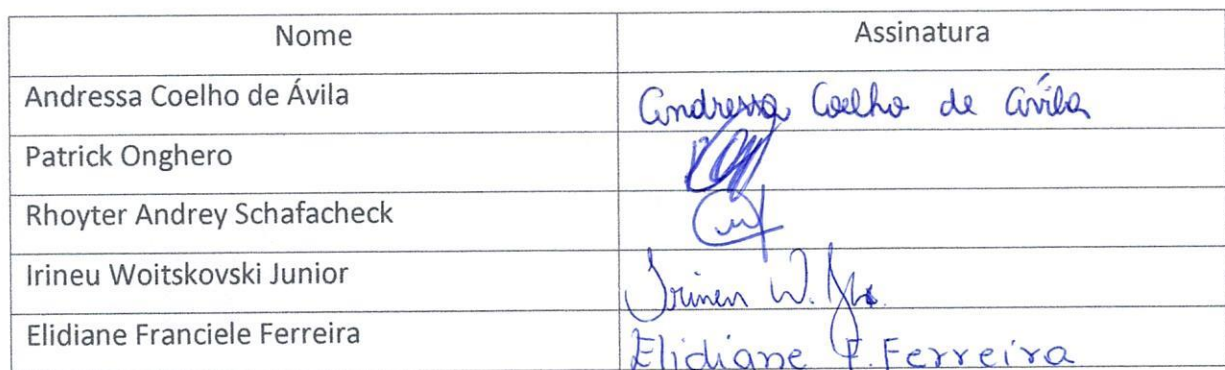 Nome Assinatura
Andressa Coelho de Ávila Andressa Coelho de Ávila
Patrick Onghero
Rhoyter Andrey Schafacheck
Irineu Woitskovski Junior Irineu W. Jr.
Elidiane Franciele Ferreira Elidiane F. Ferreira